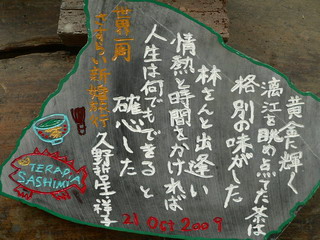 黄金に輝く
漓江を眺め点てた茶は
格別の味がした
林さんと出逢い
情熱と時間をかければ
人生は何でもできると
確心した
世界一周
さすらい新婚旅行
久野 祥子
TERADA
SASHIMI
21 Oct 2009